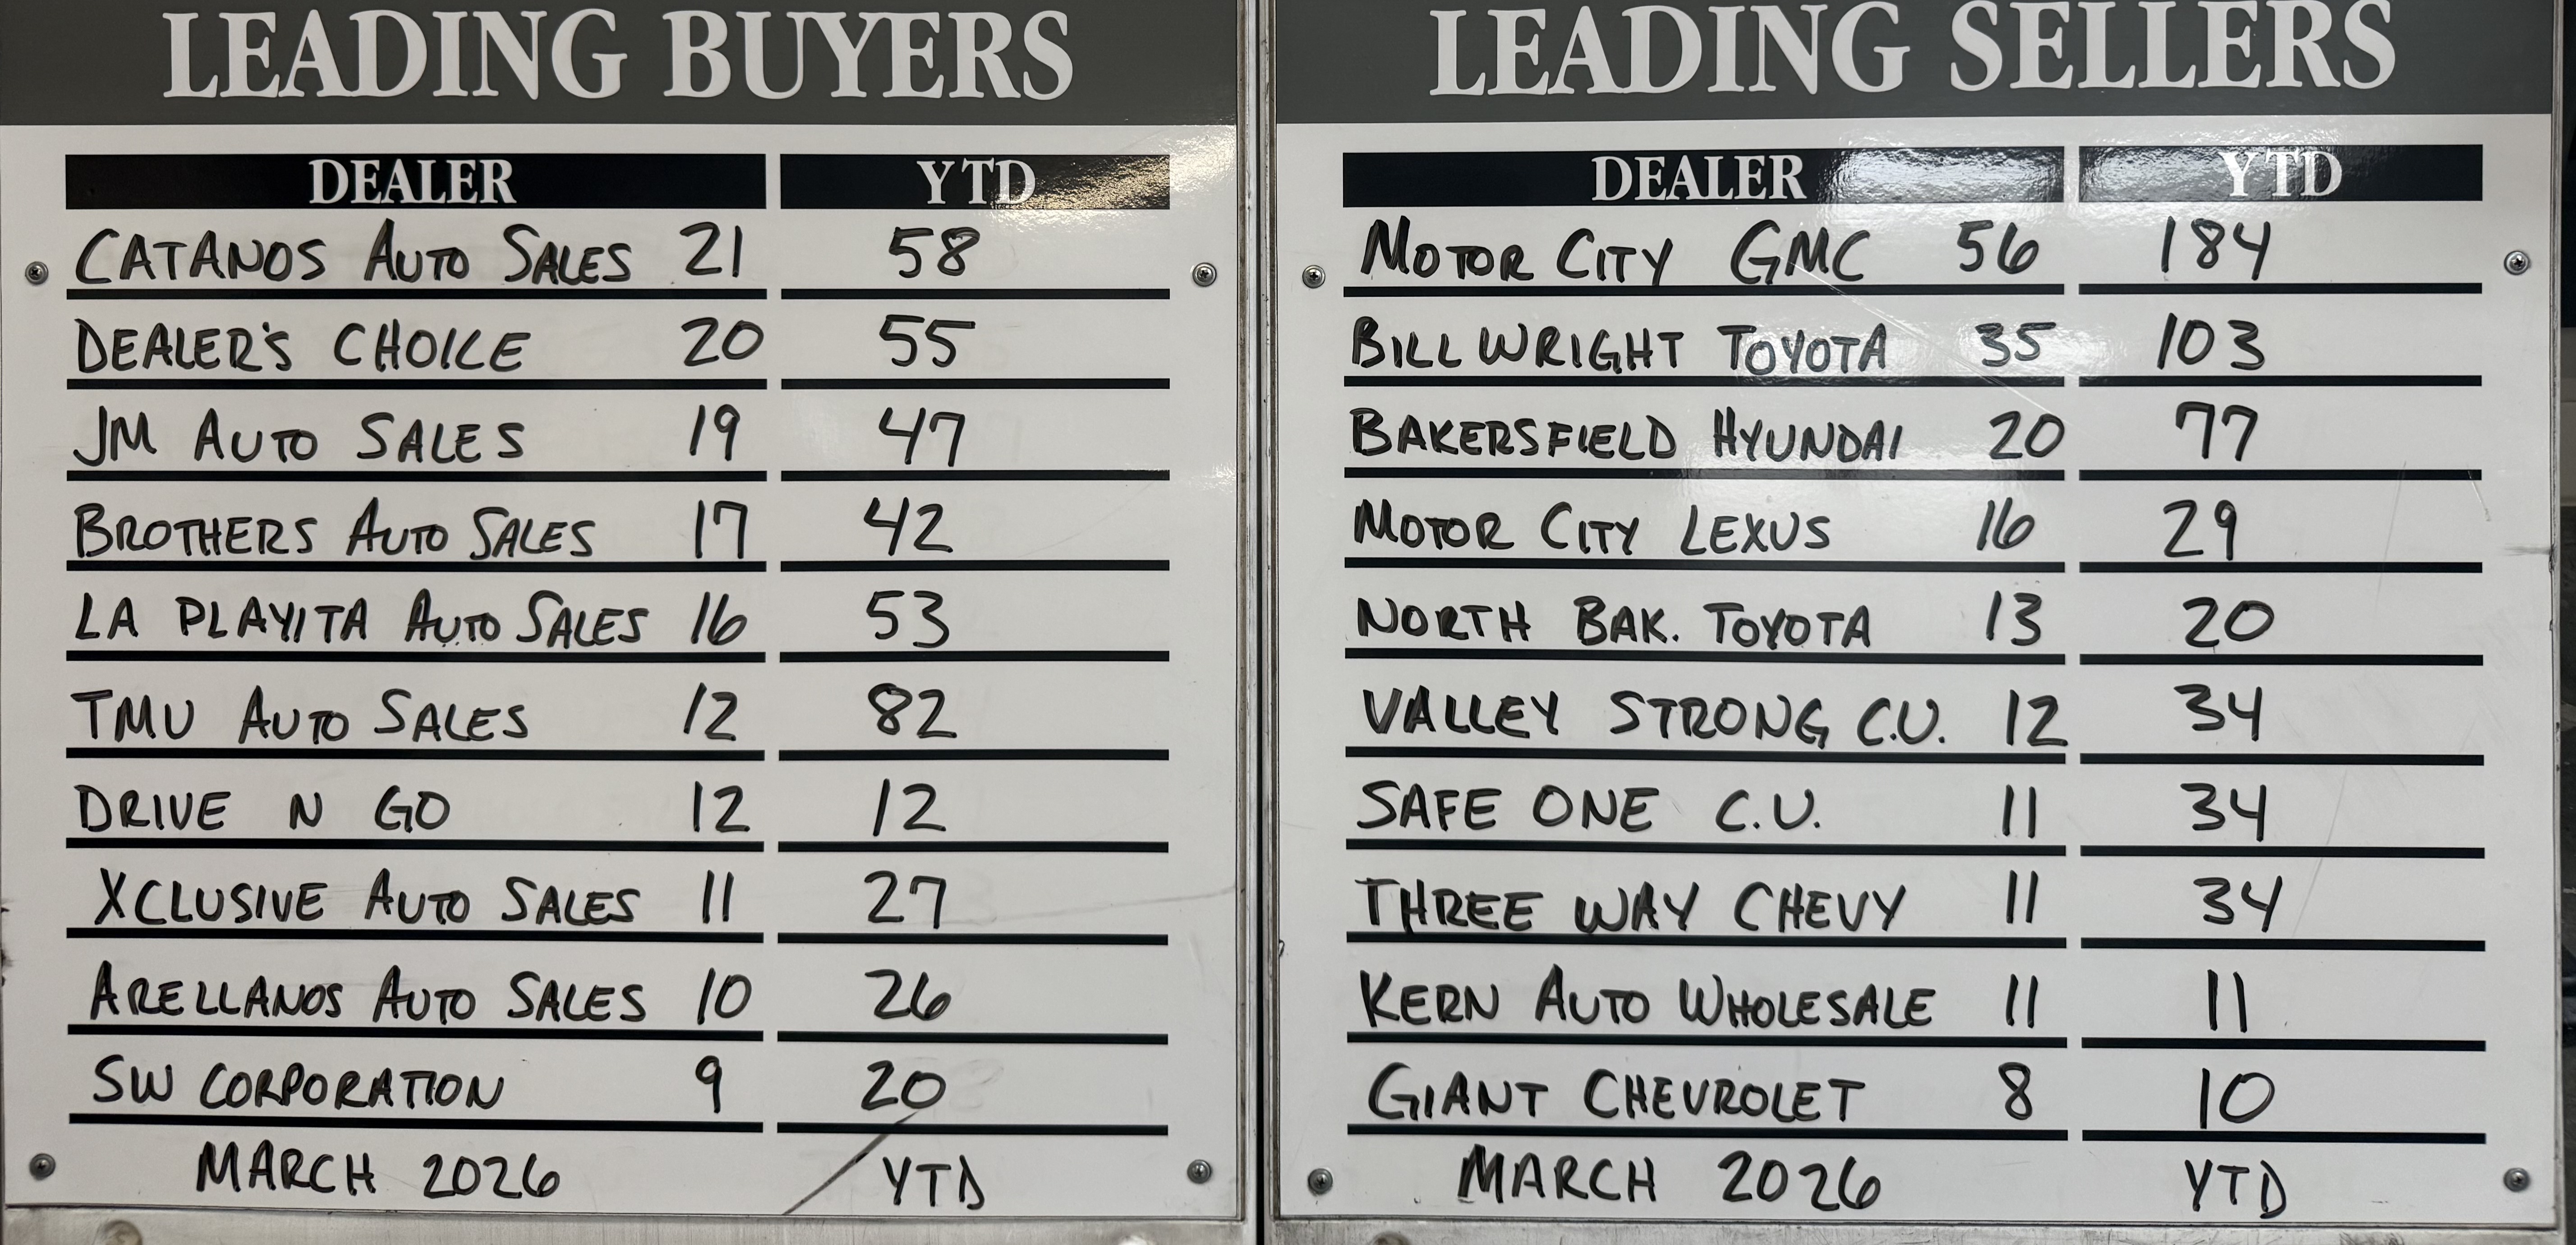 LEADING BUYERS
DEALER YTD
CATANOS AUTO SALES 21 58
DEALER'S CHOICE 20 55
JM AUTO SALES 19 47
BROTHERS AUTO SALES 17 42
LA PLAYITA AUTO SALES 16 53
TMU AUTO SALES 12 82
DRIVE N GO 12 12
XCLUSIVE AUTO SALES 11 27
ARELLANOS AUTO SALES 10 26
SW CORPORATION 9 20
MARCH 2026 YTD
LEADING SELLERS
DEALER YTD
MOTOR CITY GMC 56 184
BILL WRIGHT TOYOTA 35 103
BAKERSFIELD HYUNDAI 20 77
MOTOR CITY LEXUS 16 29
NORTH BAK. TOYOTA 13 20
VALLEY STRONG C.U. 12 34
SAFE ONE C.U. 11 34
THREE WAY CHEVY 11 34
KERN AUTO WHOLESALE 11 11
GIANT CHEVROLET 8 10
MARCH 2026 YTD